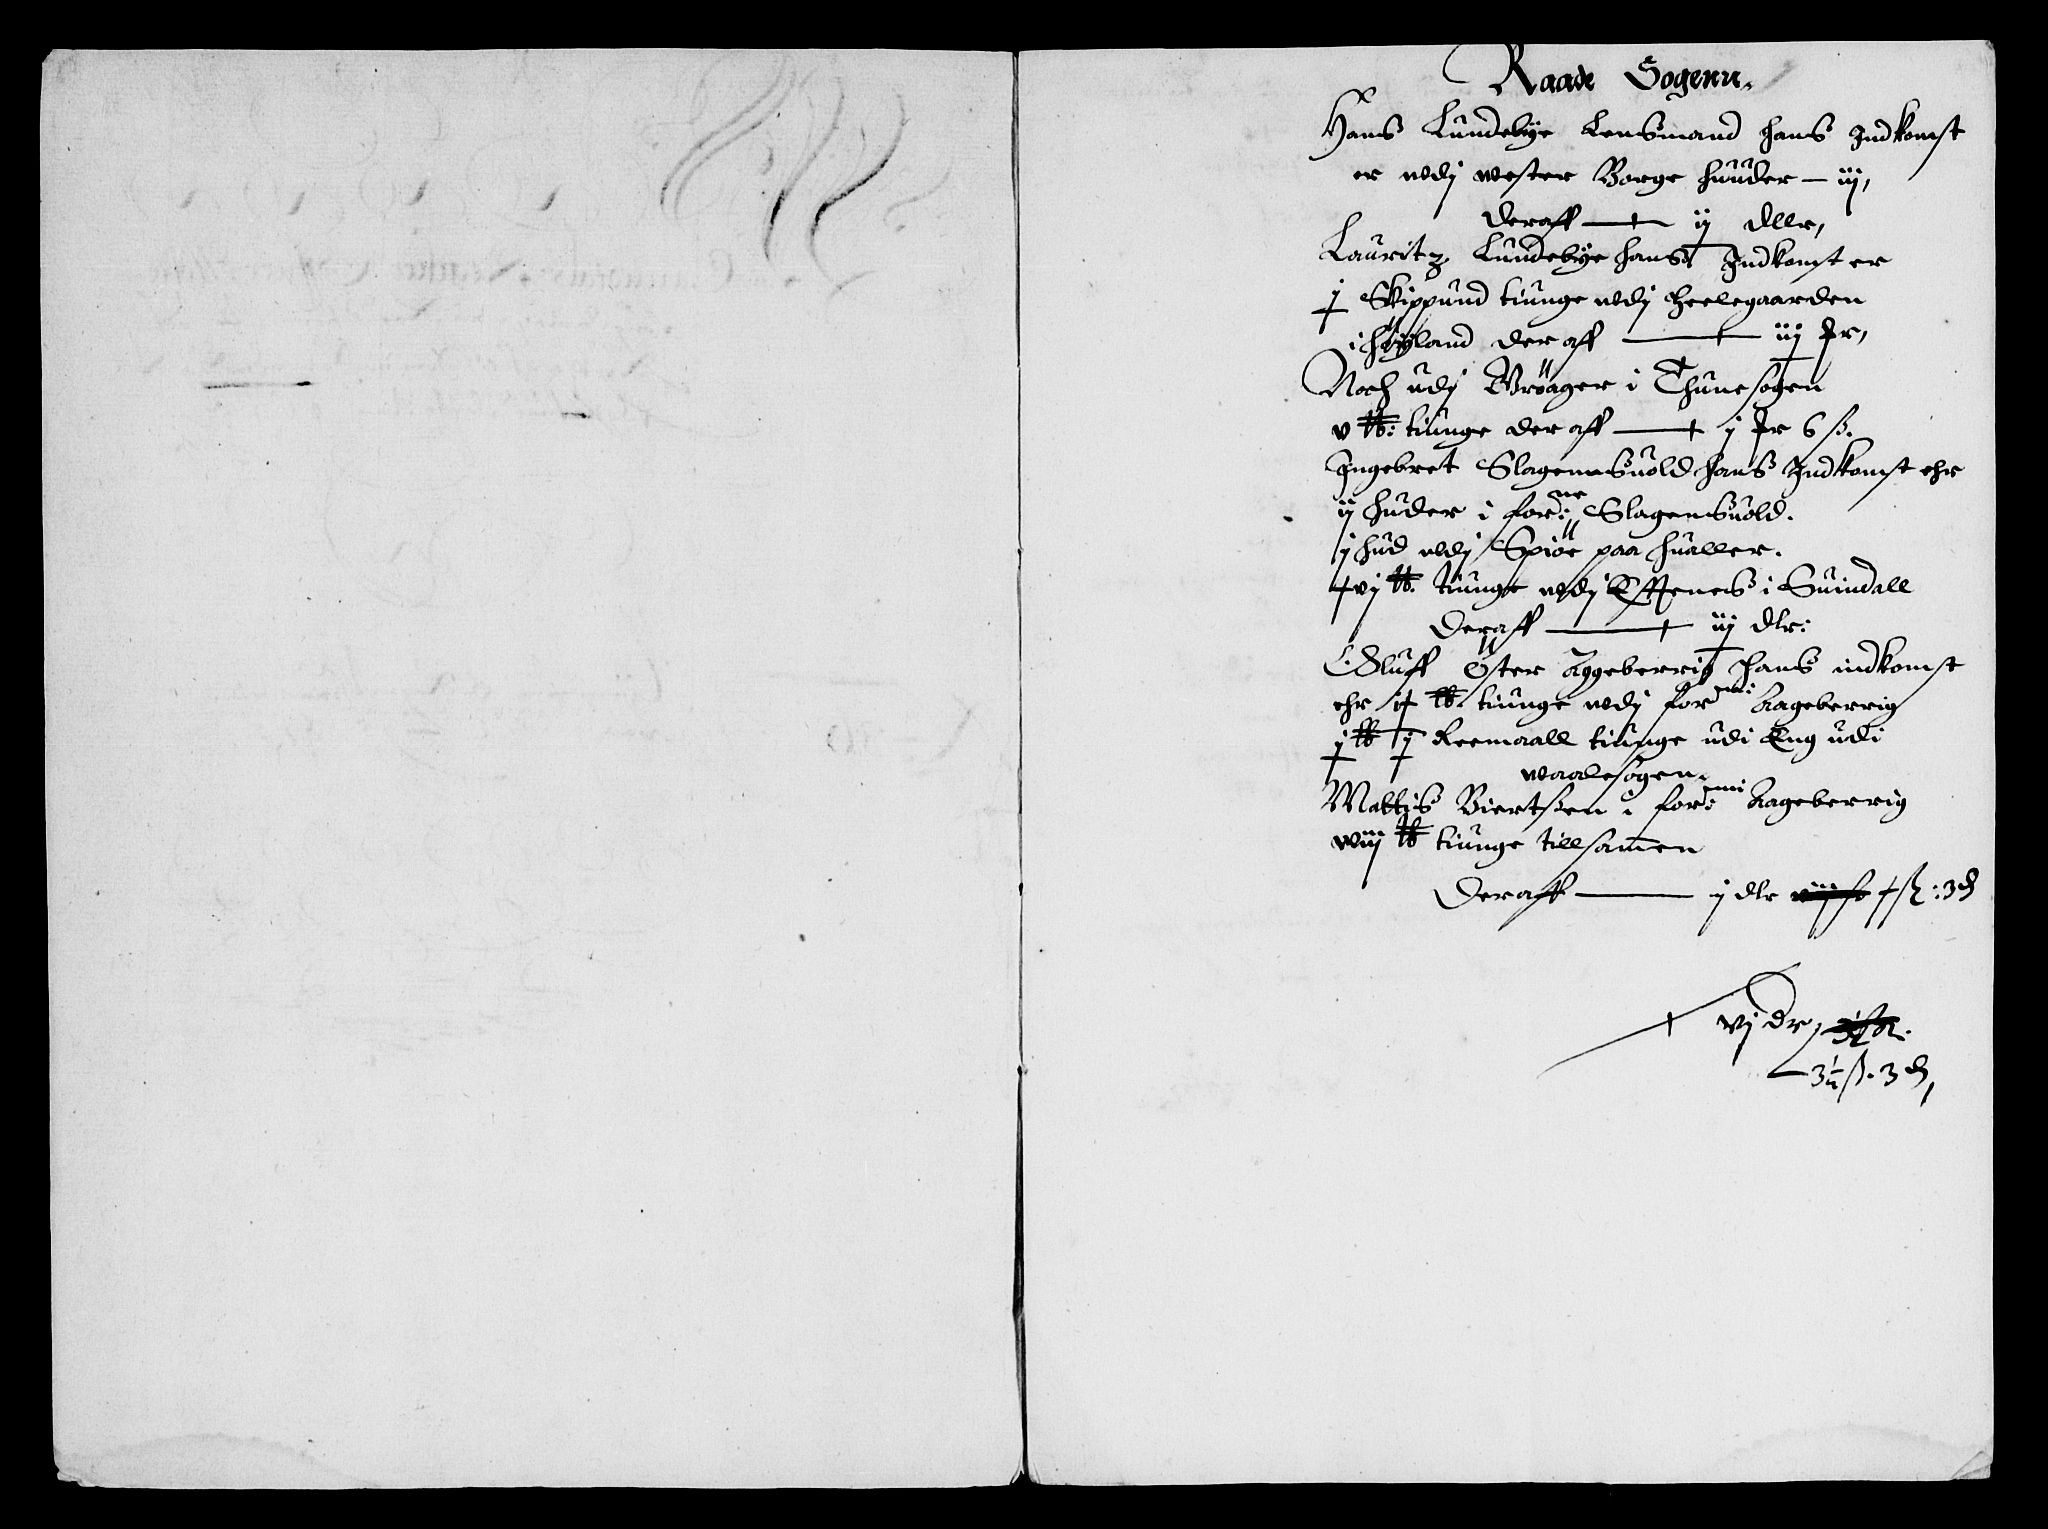 Raade Sogenn.
Hans Lundebÿe Lensmand hans Indkomst
er wdj wester Borge huuder — iij,
deraff — ij dllr,
Lauritz Lundebÿe hans Indkomst er
j Skippund tiunge wdj Heelegaarden
i höÿland deraff — iij
Noch udj Bröager i Thune sogen
v ℔: tiunge deraff — j 6 ß.
Ingebret Slagennsuold hans Indkomst ehr
ij huder i for:ne Slagensuold.
j hud wdj Spiöe paa Hualler.
vj ℔. tiunge wdj i Suindall
Deraff — iij dlr:
Oluff Öster Aggeberrig hans indkomst
ehr ij ℔. tiunge wdj forne: Aageberrig
j ℔ j Reemaall tiunge udi Eng udi
waalesogen.
Mattis Biertsen i for:ni Aageberrig
viij ℔ tiunge tillsamen
Deraff — j dlr ß: 3 d
vj dr
3½ ß. 3 d,